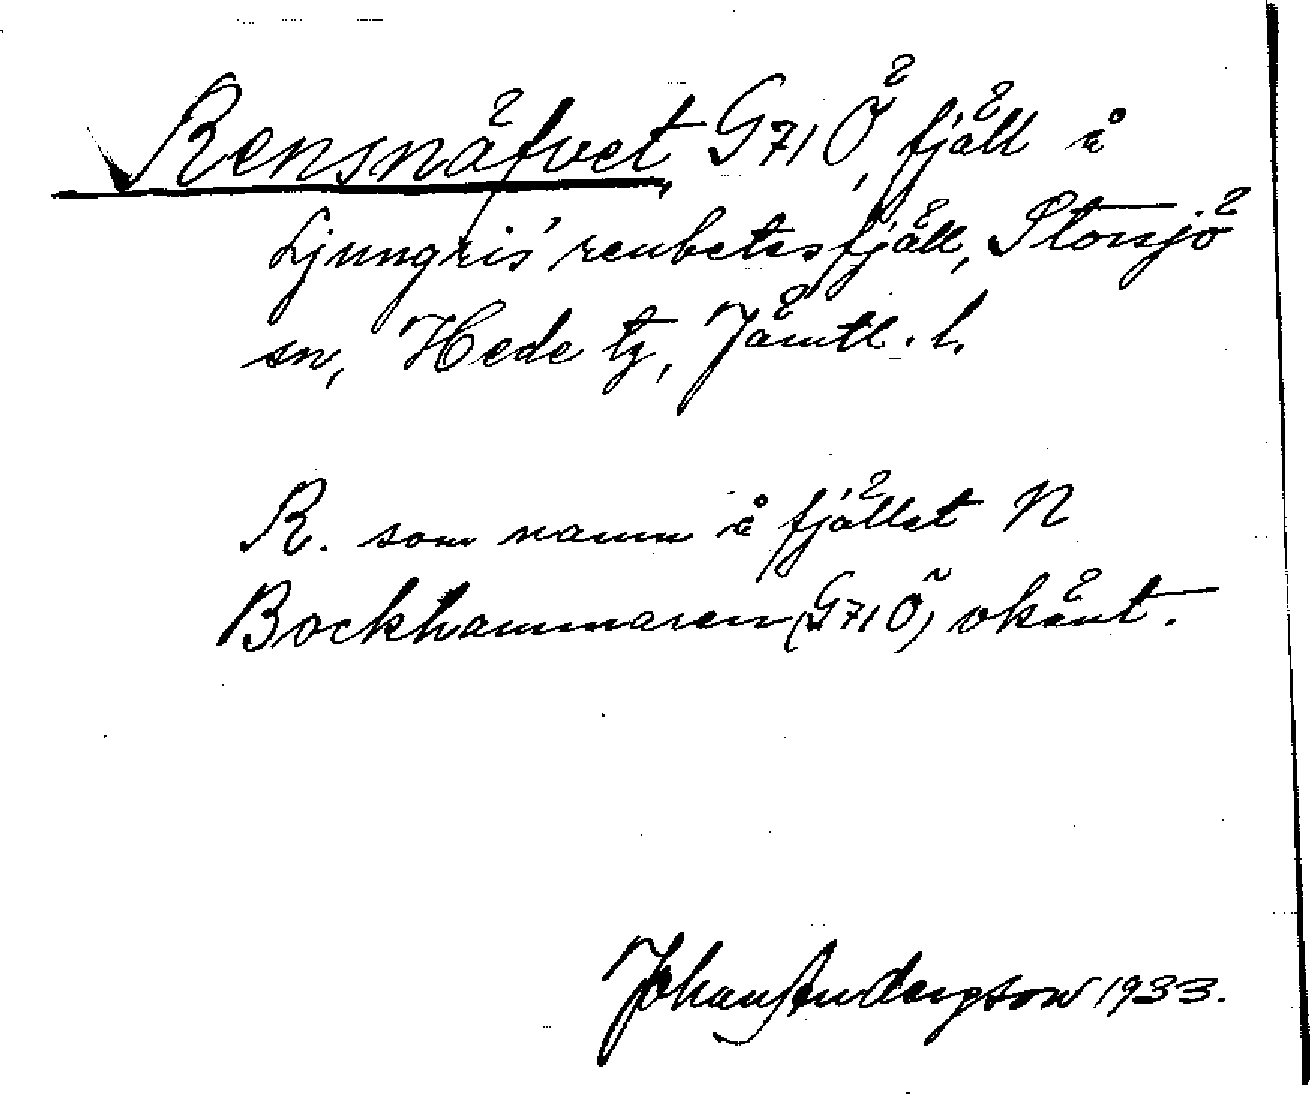 Rensnäfvet, G71Ö, fjäll å
Ljungris' renbetesfjäll, Storsjö
sn, Hede tg, Jämtl. l.
R. som namn å fjället N
Bockhammaren (G71Ö) okänt.
Johan Andersson 1933.